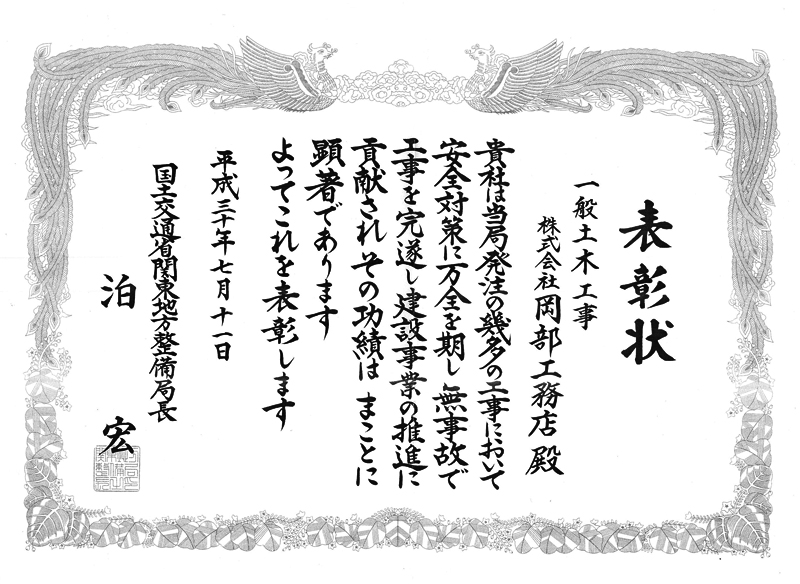 表彰状
一般土木工事
株式会社岡部工務店殿
貴社は当局発注の幾多の工事において
安全対策に万全を期し無事故で
工事を完遂し建設事業の推進に
貢献されその功績はまことに
顕著であります
よってこれを表彰します
平成三十年七月十一日
国土交通省関東地方整備局長
泊宏